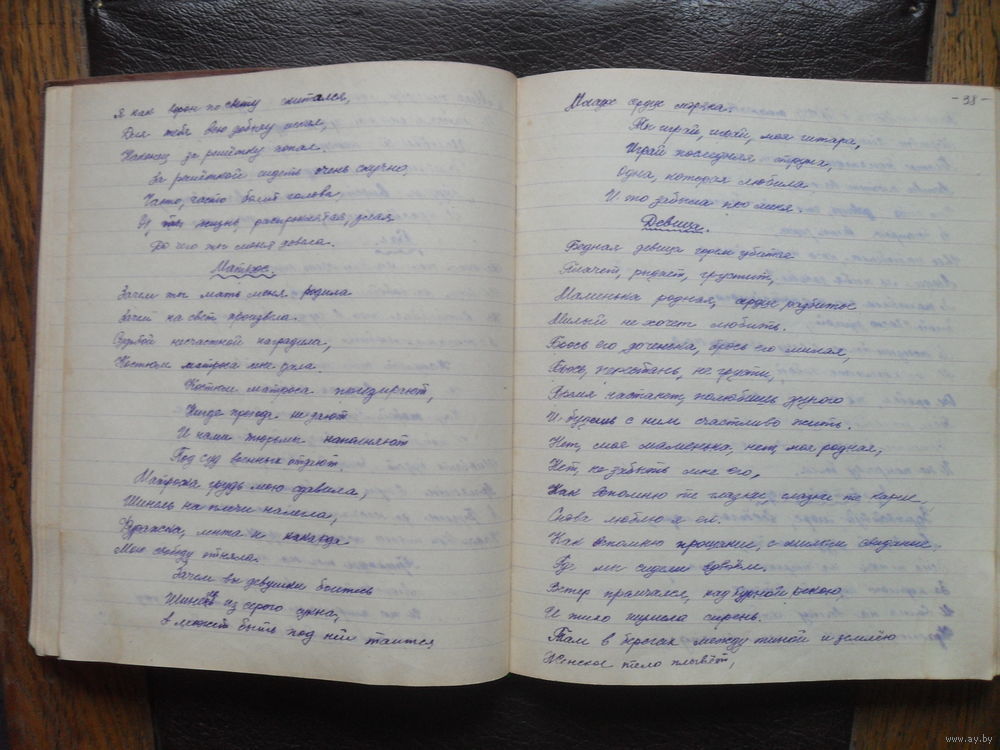 Я как ворон по свету скитался,
Для тебя всю добычу искал,
Наконец за решётку попал.
За решёткой сидеть очень скучно
Часто, часто болит голова
И, ты жизнь, распроклятая, злая
До чего ты меня довела.
Матрос.
Зачем ты мать меня родила
Зачем на свет произвела.
Судьбой несчастной наградила,
Костюм матроса мне дала.
Костюм матроса презирают,
Нигде прохода не дают
И нами тюрьмы наполняют
Под суд военных отдают.
Матроска грудь мою сдавила,
Шинель на плечи налегла,
Фуражка, лента и
Мою свободу отняла.
Зачем вы девушки боитесь
Шинель из серого сукна,
А может быть под ней таится
- 38 -
Младое сердце моряка.
Ты играй, играй, моя гитара,
Играй последняя струна,
Одна, которая любила
И то забыла про меня.
Девица.
Бедная девица горем убитая
Плачет, рыдает, грустит,
Маменька родная, сердце разбитое
Милый не хочет любить.
Брось его доченька, брось его милая,
Брось, перестань, не грусти,
Время настанет, полюбишь другого
И будешь с ним счастливо жить.
Нет, моя маменька, нет, моя родная,
Нет, не забыть мне его,
Как вспомню те глазки, глазки те карие,
Снова люблю я его.
Как вспомню прощание, с милым свидание
Где мы сидели вдвоём.
Ветер промчался, над бурной рекою
И тихо шумела сирень.
Там в берегах между тиной и землёю
Женское тело плывёт,
www.ay.by